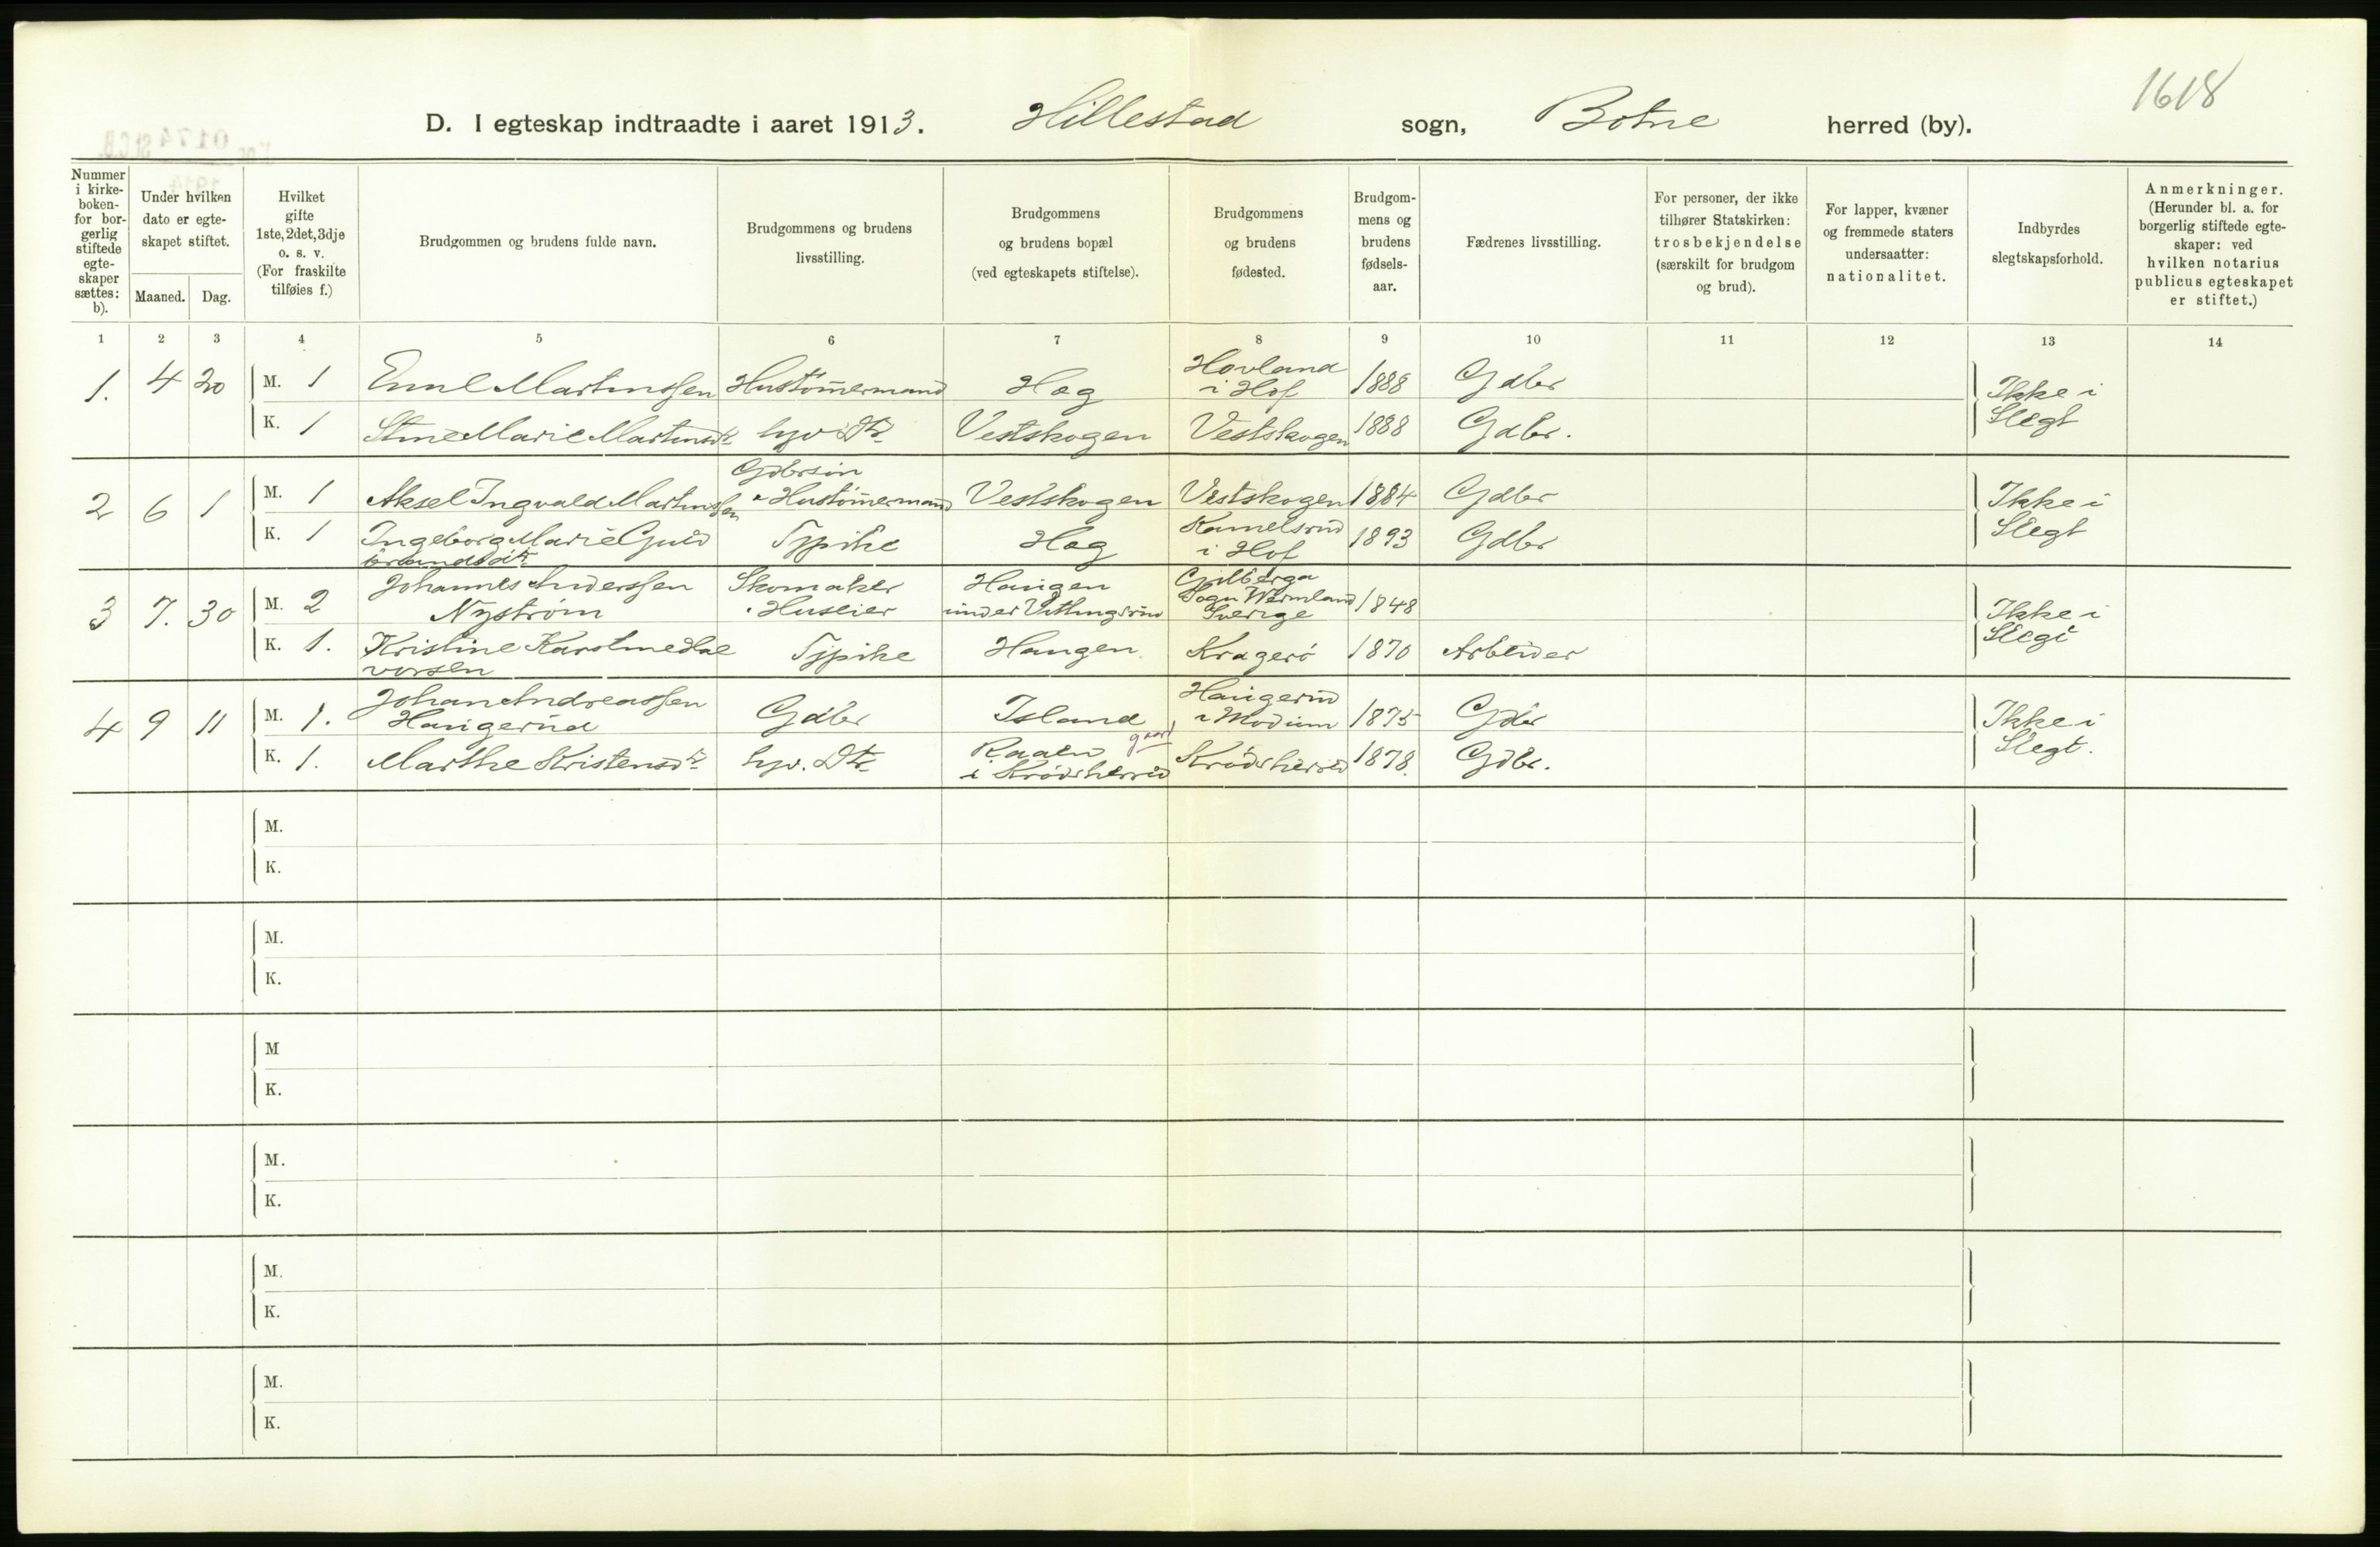 1618
D. I egteskap indtraadte i aaret 1913. Hillestad sogn, Botne herred (by).
Nummer i kirke-boken- for bor-gerlig stiftede egte-skaper sættes: b).
Under hvilken dato er egte-skapet stiftet.
Maaned. Dag.
Hvilket gifte 1ste, 2det, 3dje o. s. v. (For fraskilte tilføies f.)
Brudgommen og brudens fulde navn.
Brudgommens og brudens livsstilling.
Brudgommens og brudens bopæl (ved egteskapets stiftelse).
Brudgommens og brudens fødested.
Brudgom-mens og brudens fødsels-aar.
Fædrenes livsstilling.
For personer, der ikke tilhører Statskirken: trosbekjendelse (særskilt for brudgom og brud).
For lapper, kvæner og fremmede staters undersaatter: nationalitet.
Indbyrdes slegtskapsforhold.
Anmerkninger. (Herunder bl. a. for borgerlig stiftede egte-skaper: ved hvilken notarius publicus egteskapet er stiftet.)
1 2 3 4 5 6 7 8 9 10 11 12 13 14
1. 4 20 M. 1 Emil Martinssen Hustömermand Hag Hovland i Hof 1888 Gdbr Ikke i Slegt
K. 1 Stine Marie Martinsdtr hjv Dtr Vestskogen Vestskogen 1888 Gdbr.
2 6 1 M. 1 Aksel Ingvald Martinssen Gdbrsön Hustömermand Vestskogen Vestskogen 1884 Gdbr Ikke i Slegt
K. 1 Ingeborg Marie Gulbrandsdtr Tjpike Hag Kamelsrud i Hof 1893 Gdbr
3 7. 30 M. 2 Johannes Anderssen Nyström Skomaker Huseier Haugen under Vitlingsrud Gilberga Sogn Wermland Sverige 1848 Ikke i Slegt
K. 1. Kristine Karoline Halvorsen Tjpike Haugen Kragerö 1870 Arbeider
4 9 11 M. 1. Johan Andreassen Haugerud Gdbr Island Haugerud i Modum 1875 Gdbr Ikke i Slegt.
K. 1. Marthe Kristensdtr hjv. Dtr Raaen gaard i Krödsherred Krödsherred 1878. Gdbr.
M.
K.
M.
K.
M
K.
M.
K.
M.
K.
M.
K.